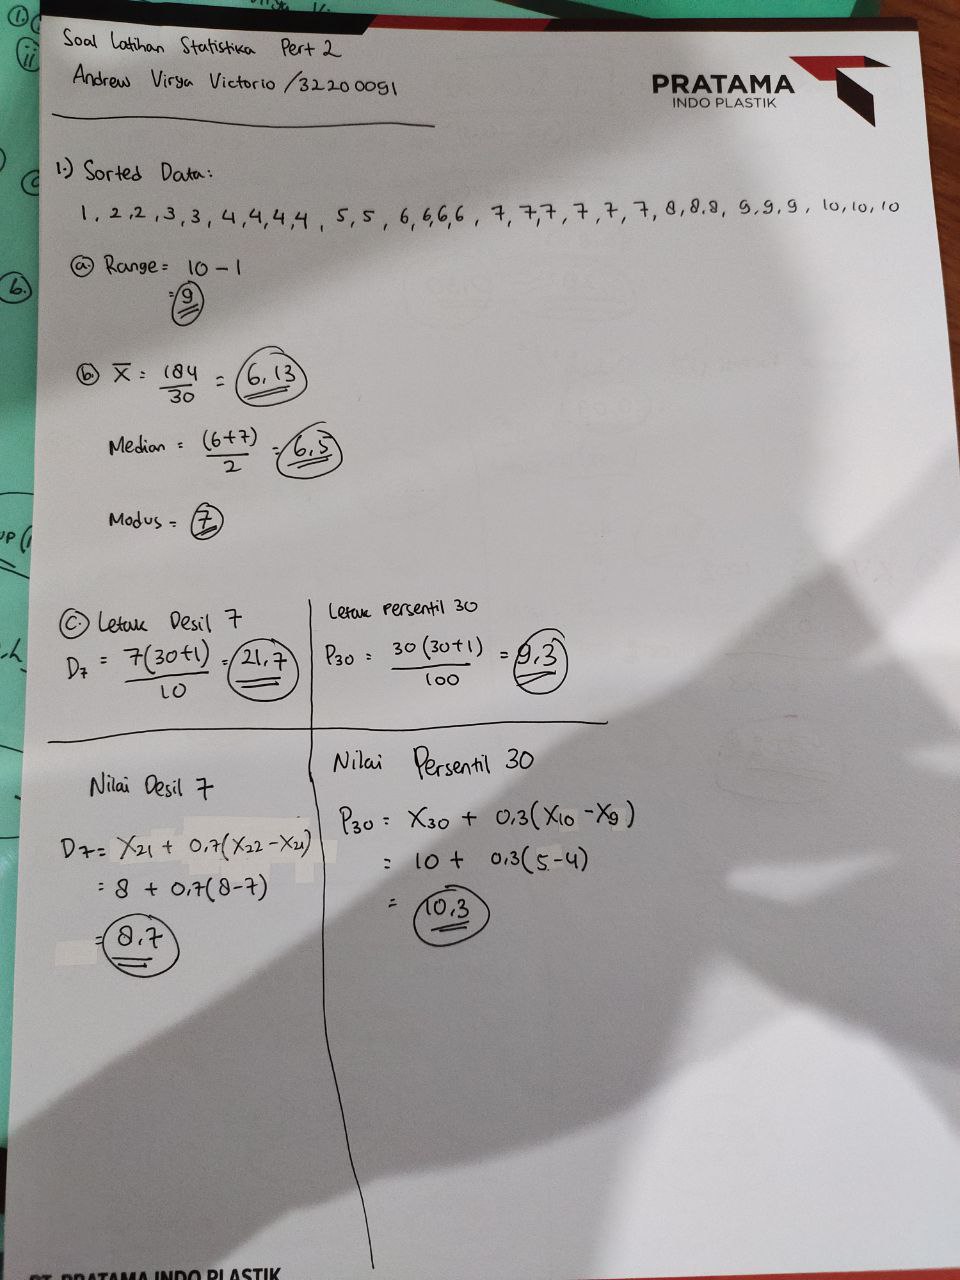 Soal Latihan Statistika Pert 2
Andrew Virya Victorio /32200091
PRATAMA
INDO PLASTIK
1.) Sorted Data:
1, 2, 2, 3, 3, 4, 4, 4, 4, 5, 5, 6, 6, 6, 6, 7, 7, 7, 7, 7, 7, 8, 8, 8, 9, 9, 9, 10, 10, 10
a. Range = 10 - 1
= 9
b. x̄ = 184/30 = 6,13
Median = (6+7)/2 = 6,5
Modus = 7
c. Letak Desil 7
D7 = 7(30+1)/10 = 21,7
Letak Persentil 30
P30 = 30(30+1)/100 = 9,3
Nilai Desil 7
D7 = X21 + 0,7(X22 - X21)
= 8 + 0,7(8-7)
= 8,7
Nilai Persentil 30
P30 = X30 + 0,3(X10 - X9)
= 10 + 0,3(5-4)
= 10,3
PT. PRATAMA INDO PLASTIK